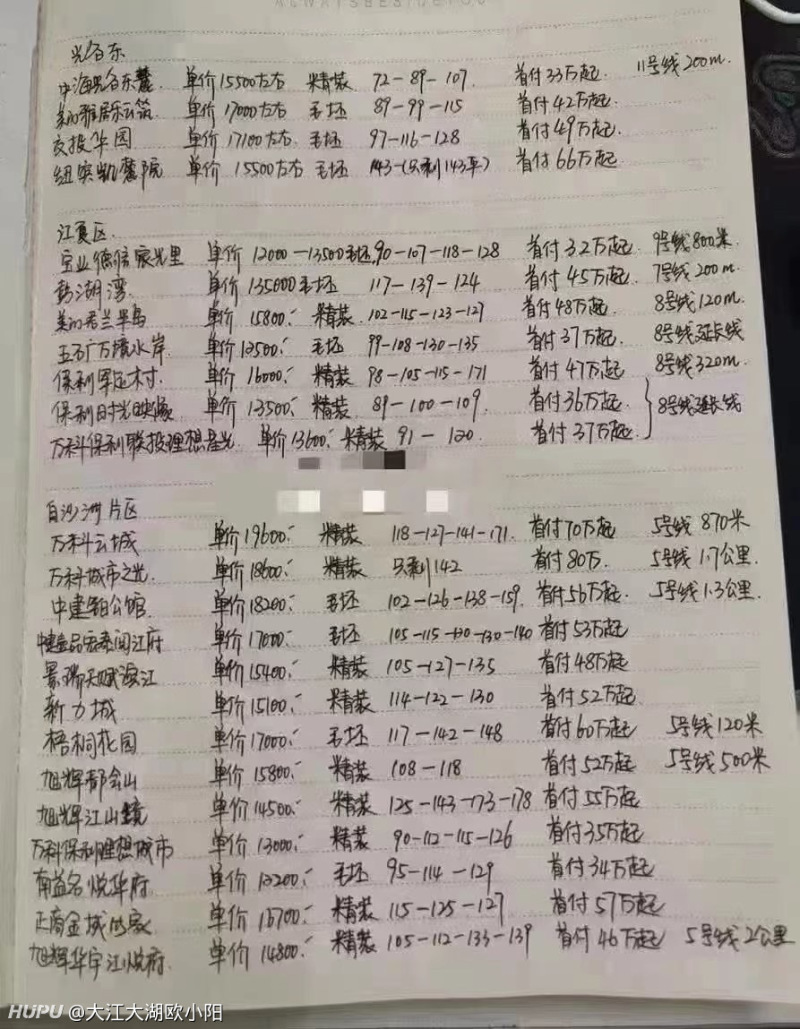 ALWAYSBESIDEYOU
光谷东
中海光谷东麓 单价15500左右 精装 72-89-107 首付33万起 11号线200m.
美的雅居乐云筑 单价17000左右 毛坯 89-99-115 首付42万起.
交投华园 单价17100左右 毛坯 97-116-128 首付49万起.
纽宾凯麓院 单价15500左右 毛坯 143-(只剩143平) 首付66万起
江夏区.
宝业德信宸光里 单价12000-13500毛坯,90-107-118-128 首付3.2万起. 9号线800米.
湖湾 单价135000毛坯 117-139-124 首付45万起. 7号线200m.
美的君兰半岛 单价15800: 精装 102-115-123-127 首付48万起. 8号线120m.
五矿万境水岸 单价13500: 毛坯 99-108-130-135 首付37万起 8号线延长线
保利军运村. 单价16000: 精装 98-105-115-171 首付47万起 8号线320m.
保利时光印象 单价13500: 精装 89-100-109. 首付36万起. 8号线延长线
万科保利联投理想星光 单价13600: 精装 91-120. 首付37万起.
白沙洲片区
万科云城 单价19600: 精装 118-127-141-171. 首付70万起 5号线870米
万科城市之光. 单价18600: 精装 只剩142 首付80万. 5号线1.7公里.
中建铂公馆 单价18200: 毛坯 102-126-138-159. 首付56万起. 5号线1.3公里.
阅江府 单价17000: 毛坯 105-115-120-130-140 首付53万起
景瑞天赋滨江 单价15400: 精装 105-127-135 首付48万起
新力城 单价15100: 精装 114-122-130 首付52万起.
梧桐花园 单价17000: 毛坯 117-142-148 首付60万起 5号线120米
旭辉都会山 单价15800: 精装 108-118 首付52万起 5号线500米
旭辉江山境 单价14500: 精装 125-143-173-178 首付55万起
万科保利理想城市 单价13000: 精装 90-112-115-126 首付35万起
南益名悦华府 单价13200: 毛坯 95-114-129 首付34万起
正商金域世家 单价16700: 精装 115-125-127 首付57万起
旭辉华宇江悦府. 单价14800: 精装 105-112-133-139 首付46万起 5号线2公里
HUPU @大江大湖欧小阳